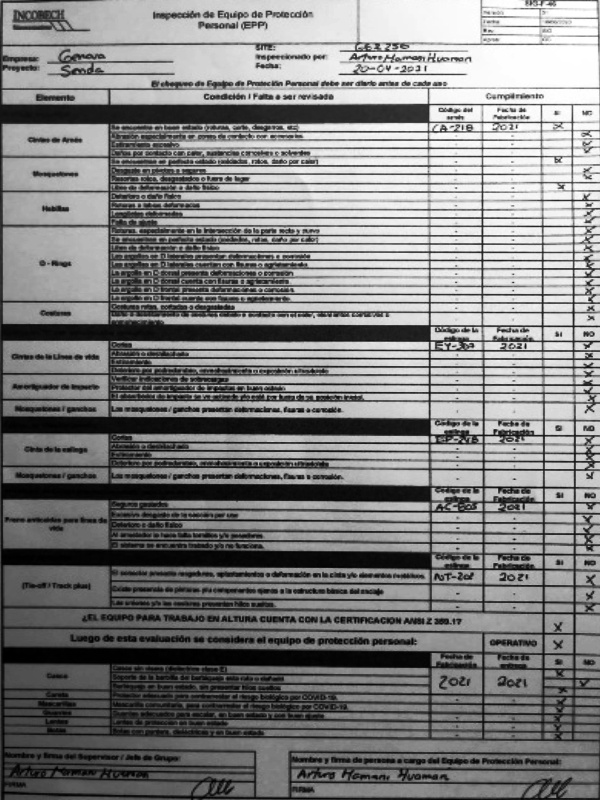 INCOBECH
Inspección de Equipo de Protección
Personal (EPP)
SIG-F-46
Fecha
Empresa: Genova
Proyecto: Senda
SITE: GEZ 250
Inspeccionado por: Arturo Mamani Huaman
Fecha: 20-04-2021
El chequeo de Equipo de Protección Personal debe ser diario antes de cada uso
Elemento Condición / Falta a ser revisada Cumplimiento
Código del arnés Fecha de Fabricación SI NO
Cintas de Arnés
Se encuentran en buen estado (roturas, corte, desgarros, etc) CA-218 2021 X
Abrasión especialmente en zonas de contacto con accesorios X
Estiramiento excesivo X
Daños por contacto con calor, sustancias corrosivas o solventes X
Mosquetones
Se encuentran en perfecto estado (oxidados, rotos, daño por calor) X
Desgaste en pivotes o seguros X
Resortes rotos, desgastados o fuera de lugar X
Libre de deformación o daño físico X
Hebillas
Deterioro o daño físico X
Roturas o tabas deformadas X
Lengüetas deformadas X
Falta de ajuste X
O - Rings
Roturas, especialmente en la intersección de la parte recta y curva X
Se encuentran en perfecto estado (oxidados, rotos, daño por calor) X
Libre de deformación o daño físico X
Las argollas en D laterales presentan deformaciones o corrosión X
Las argollas en D laterales cuentan con fisuras o agrietamiento. X
La argolla en D dorsal presenta deformaciones o corrosión X
La argolla en D dorsal cuenta con fisuras o agrietamiento X
La argolla en D frontal presenta deformaciones o corrosión. X
La argolla en D frontal cuenta con fisuras o agrietamiento. X
Costuras
Costuras rotas, cortadas o desgastadas X
Código de la eslinga Fecha de Fabricación SI NO
Cintas de la Línea de vida
Cortes EY-307 2021 X
Abrasión o deshilachado X
Estiramiento X
Deterioro por podredumbre, envejecimiento o exposición ultravioleta X
Amortiguador de impacto
Verificar indicaciones de sobrecargas X
Protector del amortiguador de impactos en buen estado X
El absorbedor de impacto se ve activado y/o está por fuera de su posición inicial. X
Mosquetones / ganchos Los mosquetones / ganchos presentan deformaciones, fisuras o corrosión. X
Código de la eslinga Fecha de Fabricación SI NO
Cinta de la eslinga
Cortes EP-248 2021 X
Abrasión o deshilachado X
Estiramiento X
Deterioro por podredumbre, envejecimiento o exposición ultravioleta X
Mosquetones / ganchos Los mosquetones / ganchos presentan deformaciones, fisuras o corrosión. X
Código de la eslinga Fecha de Fabricación SI NO
Freno anticaídas para línea de vida
Seguros gastados AC-805 2021 X
Excesivo desgaste de la sección por uso X
Deterioro o daño físico X
Al arrestador le hace falta tornillos y/o pasadores. X
El sistema se encuentra trabado y/o no funciona. X
Código de la eslinga Fecha de Fabricación SI NO
(Tie-off / Track plus)
El conector presenta rasgaduras, aplastamientos o deformación en la cinta y/o elementos metálicos. NT-202 2021 X
Existe presencia de piezas y/o componentes ajenos a la estructura básica del anclaje X
Las uniones y/o las costuras presentan hilos sueltos. X
¿EL EQUIPO PARA TRABAJO EN ALTURA CUENTA CON LA CERTIFICACION ANSI Z 359.1? X
Luego de esta evaluación se considera el equipo de protección personal: OPERATIVO X
Fecha de Fabricación Fecha de SI NO
Casco
Casco sin visera (dieléctrico clase E) 2021 2021 X
Soporte de la barbilla del barbiquejo esta roto o dañado
Barbiquejo en buen estado, sin presentar hilos sueltos X
Careta Protector adecuado para contrarrestar el riesgo biológico por COVID-19. X
Mascarillas Mascarilla comunitaria, para contrarrestar el riesgo biológico por COVID-19. X
Guantes Guantes adecuados para escalar, en buen estado y con buen ajuste X
Lentes Lentes de protección en buen estado X
Botas Botas con puntera, dieléctricas y en buen estado X
Nombre y firma del Supervisor / Jefe de Grupo:
Arturo Mamani Huaman
FIRMA
Nombre y firma de persona a cargo del Equipo de Protección Personal:
Arturo Mamani Huaman
FIRMA